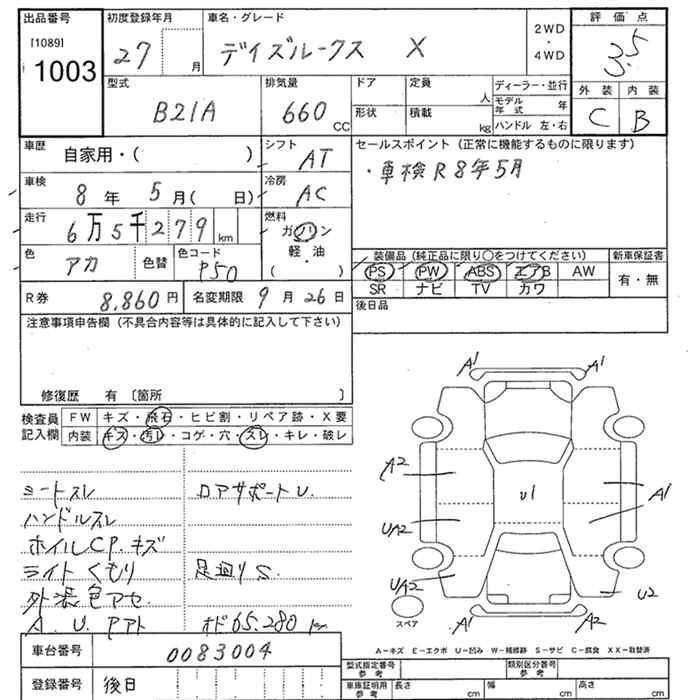 出品番号
[1089]
1003
初度登録年月
27 月
車名・グレード
デイズルークス X
2WD
・
4WD
評価点
3.5
外装 内装
C B
型式
B21A
排気量
660 CC
ドア
形状
定員 人
積載 kg
ディーラー・並行
モデル年式 年
ハンドル 左・右
車歴
自家用・( )
シフト
AT
車検
8年 5月( 日)
冷房
AC
走行
6万5千279 km
燃料
ガソリン
・
軽・油
( )
色
アカ
色替
色コード
P50
R券 8,860円
名変期限 9月26日
セールスポイント(正常に機能するものに限ります)
・車検R8年5月
装備品(純正品に限り○をつけてください)
新車保証書
PS PW ABS エアB AW
SR ナビ TV カワ
有・無
後日品
注意事項申告欄(不具合内容等は具体的に記入して下さい)
修復歴 有〔箇所 〕
検査員記入欄
FW キズ・飛石・ヒビ割・リペア跡・X要
内装 キズ・汚レ・コゲ・穴・スレ・キレ・破レ
シートスレ
ロアサポートU.
ハンドルスレ
ホイルCP.キズ
ライトくもり
足廻りS
外装色アセ
A.U.Pアト
オド65.280km
A1
A1
A2
U1
A1
UA2
UA2
U2
A1
A2
スペア
A-キズ E-エクボ U-凹み W-補修跡 S-サビ C-腐食 XX-取替済
車台番号
0083004
登録番号
後日
型式指定番号
類別区分番号
車庫証明用参考
長さ cm
幅 cm
高さ cm